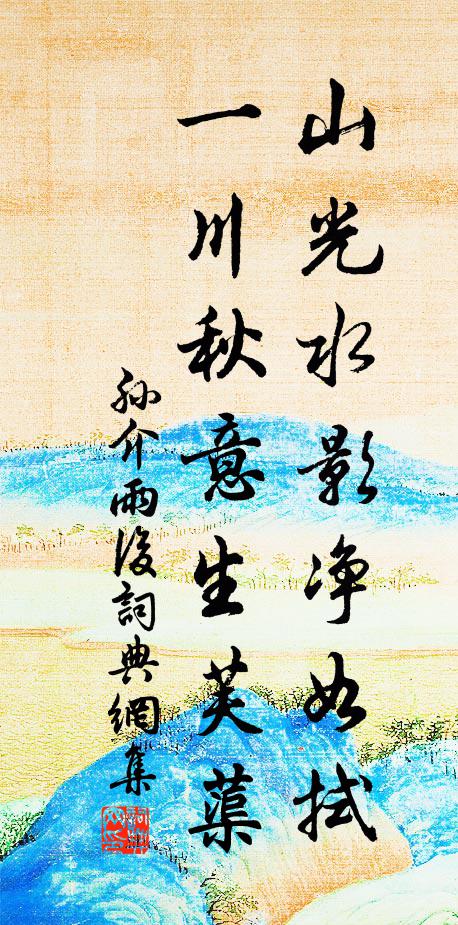 山光水影净如拭
一川秋意生芙蕖
孙介雨後詞典網集